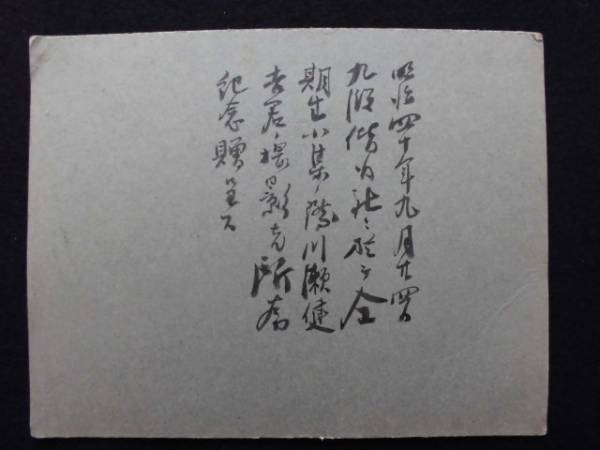 明治四十年九月廿四日
九段偕行社ニ於テ全
期生小集ノ際川瀬健
吉君ノ撮影
紀念贈呈ス